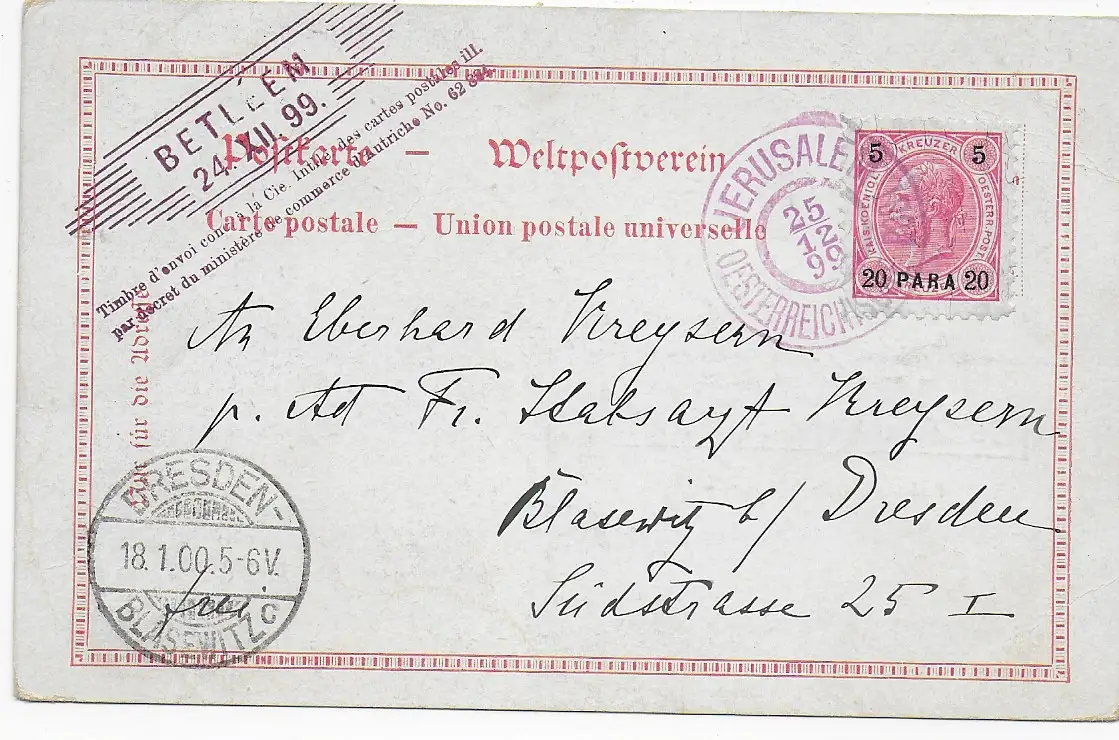 BETLÉEM
24. XII 99.
Timbre d'envoi conc. à la Cie. Intlle. des cartes postales ill.
par décret du ministère de commerce d'Autriche No. 62 824
Postkarte — Weltpostverein
Carte postale — Union postale universelle
JERUSALEM
25/12
99
OESTERREICH
5 KREUZER 5
KAIS. KOENIGL.
OESTERR. POST.
20 PARA 20
An Eberhard Kreysern
p. Ad Fr. Stabsarzt Kreysern
Blasewitz b/ Dresden
Südstrasse 25 I
für die
DRESDEN-
18.1.00.5-6V.
BLASEWITZ c
frei